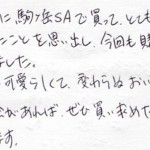 に駒ヶ岳SAで買って、とても
たことを思い出し、今回も購
ました。
可愛らしくて、変わらぬおい
会があれば、ぜひ買い求めた
ます。